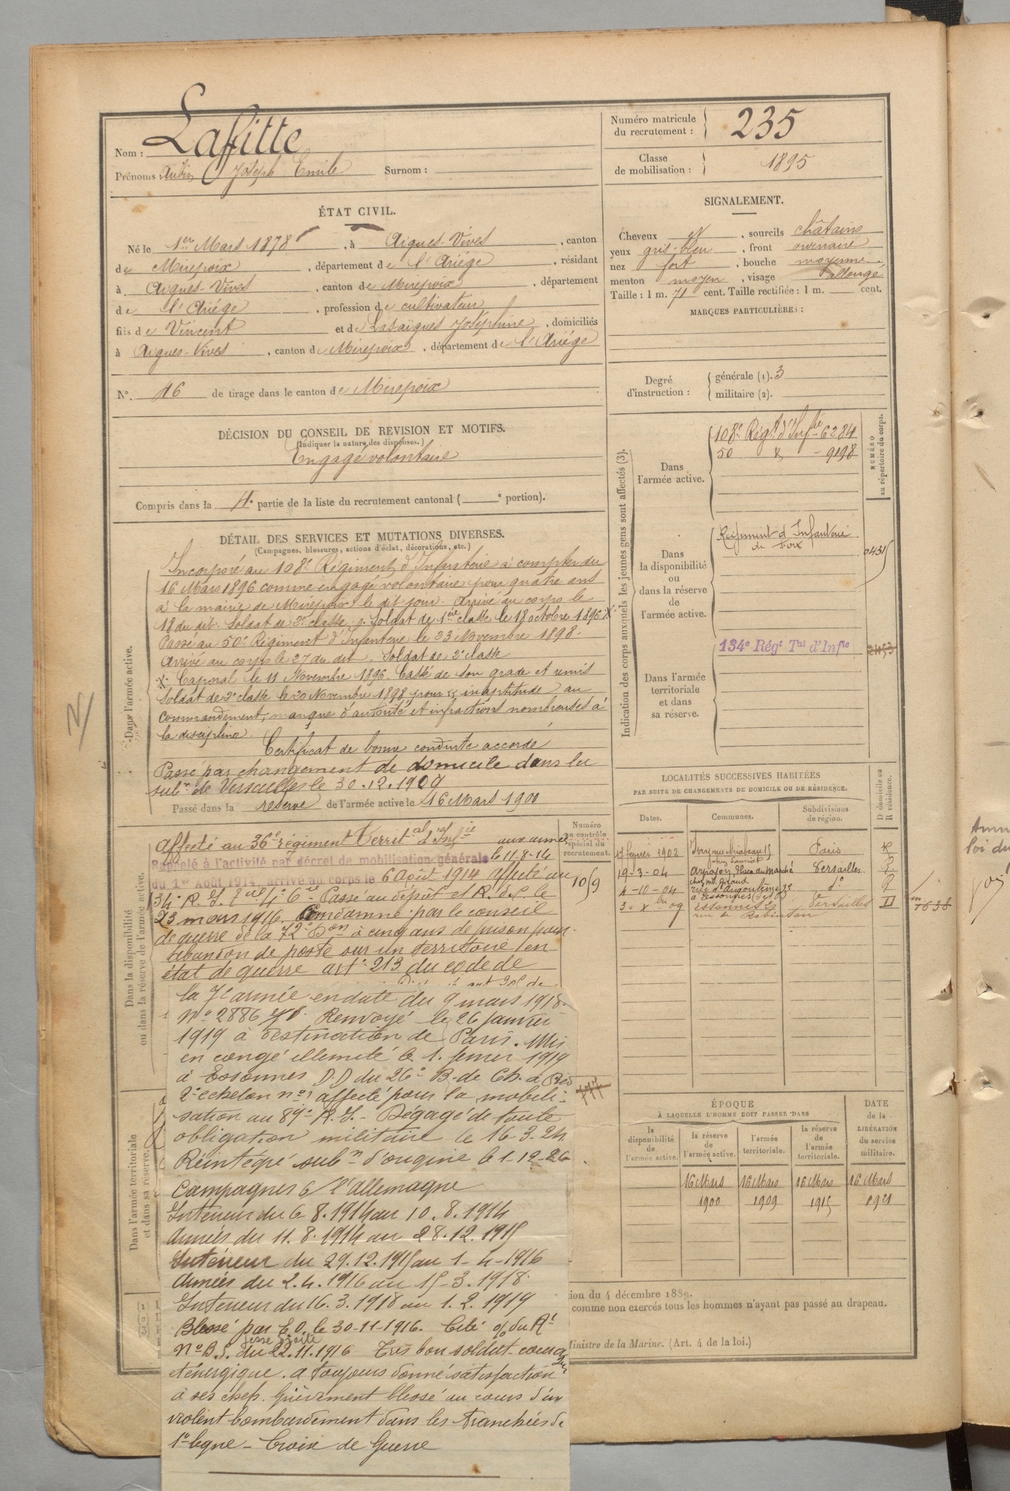 Nom : Lafitte
Prénoms : Joseph Emile Surnom :
ÉTAT CIVIL.
Né le 1er Mars 1878, à Aigues-Vives, canton
de Mirepoix, département de l'Ariége, résidant
à Aigues-Vives, canton de Mirepoix, département
de l'Ariége, profession de cultivateur
fils de Vincent et de Joséphine, domiciliés
à Aigues-Vives, canton de Mirepoix, département de l'Ariége
N° 16 de tirage dans le canton de Mirepoix
DÉCISION DU CONSEIL DE REVISION ET MOTIFS.
(Indiquer la nature des dispenses.)
Engagé volontaire
Compris dans la 4e partie de la liste du recrutement cantonal ( e portion).
DÉTAIL DES SERVICES ET MUTATIONS DIVERSES.
(Campagnes, blessures, actions d'éclat, décorations, etc.)
Dans l'armée active.
Incorporé au 108e Régiment d'Infanterie à compter du
16 Mars 1896 comme engagé volontaire pour quatre ans
à la mairie de Mirepoix le dit jour. Arrivé au corps le
18 du dit. Soldat de 2e classe. Soldat de 1ère classe le 18 octobre 1896 x
Passé au 50e Régiment d'Infanterie le 23 Novembre 1898.
Arrivé au corps le 27 du dit. Soldat de 2e classe
x Caporal le 11 Novembre 1896. Cassé de son grade et remis
Soldat de 2e classe le 20 Novembre 1898 pour inaptitude au
commandement, manque d'autorité et infractions nombreuses à
la discipline
Certificat de bonne conduite accordé
Passé par changement de domicile dans la
subon de Versailles le 30.12.1909
Passé dans la réserve de l'armée active le 16 Mars 1900
Dans la disponibilité
ou dans la réserve de l'armée active.
Affecté au 36e régiment Territal d'Infie aux armées
le 11.8.14
Rappelé à l'activité par décret de mobilisation générale
du 1er Août 1914, arrivé au corps le 6 Août 1914 affecté au
34e R.I. 4e Cie Passé au dépôt
23 mars 1916. Condamné par le conseil
de guerre de la 72e Don à cinq ans de prison pour
abandon de poste sur un territoire en
état de guerre art. 213 du code de
la 7e armée en date du 9 mars 1918.
No 2886 Renvoyé le 26 janvier
1919 à destination de Paris. Mis
en congé illimité le 1. février 1919
à Essonnes DD du 26e B. de Ch. à Pied
2e échelon no 1 affecté pour la mobili-
sation au 89e R.I. - Dégagé de toute
obligation militaire le 16.3.24
Réintégré subon d'origine le 1-12-26
Dans l'armée territoriale
et dans sa réserve.
Campagnes c/ l'Allemagne
Intérieur du 6.8.1914 au 10.8.1914
Armées du 11.8.1914 au 28.12.1915
Intérieur du 29.12.1915 au 1-4-1916
Armées du 2.4.1916 au 15-3.1918.
Intérieur du 16.3.1918 au 1.2.1919
Blessé par E.O. le 30-11-1916. Cité o/ du Rt
No B.S. du 22.11.1916 Très bon soldat
énergique. a toujours donné satisfaction
à ses chefs. Grièvement blessé au cours d'un
violent bombardement dans les tranchées de
1e ligne - Croix de Guerre
Numéro
au contrôle
spécial du
recrutement.
1019
Numéro matricule
du recrutement : 235
Classe
de mobilisation : 1895
SIGNALEMENT.
Cheveux et, sourcils châtains
yeux gris-bleu, front ordinaire
nez fort, bouche moyenne
menton moyen, visage allongé
Taille : 1 m. 71 cent. Taille rectifiée : 1 m. cent.
MARQUES PARTICULIÈRES :
Degré
d'instruction :
générale (1). 3
militaire (2).
Indication des corps auxquels les jeunes gens sont affectés (3).
NUMÉRO
au répertoire du corps.
Dans
l'armée active.
108e Régt d'Infie 6284
50 - 9198
Dans
la disponibilité
ou
dans la réserve
de
l'armée active.
Régiment d'Infanterie
de Foix
0431
Dans l'armée
territoriale
et dans
sa réserve.
134e Régt Tal d'Infie
LOCALITÉS SUCCESSIVES HABITÉES
PAR SUITE DE CHANGEMENTS DE DOMICILE OU DE RÉSIDENCE.
Dates. Communes. Subdivisions
de région. D domicile ou
R résidence.
1902 Paris R
19-3-04 Arpajon, Place du Marché Versailles
4-10-04 rue d'Angoulême d°
09 Essonnes Versailles D
ÉPOQUE
À LAQUELLE L'HOMME DOIT PASSER DANS
DATE
de la
LIBÉRATION
du service
militaire.
la
disponibilité
de
l'armée active.
la
réserve
de
l'armée active.
l'armée
territoriale.
la
réserve
de
l'armée
territoriale.
16 Mars 16 Mars 16 Mars 16 Mars
1900 1909 1915 1921
ion du 4 décembre 1889.
comme non exercés tous les hommes n'ayant pas passé au drapeau.
Ministre de la Marine. (Art. 4 de la loi.)